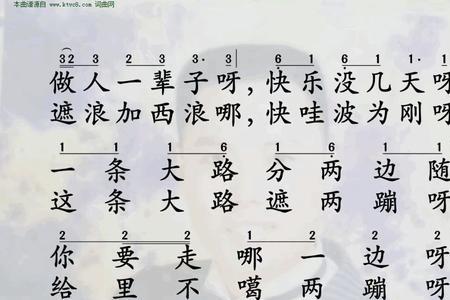 本曲谱源自 www.ktvc8.com 词曲网
3 2 3 2 3 3· 3 | 6 1 6 1 1· 1
做人一辈子呀，快乐没几天呀
遮浪加西浪哪，快哇波为刚呀
1 1 1 6 1 1 1 1
一条大路分两边随
这条大路遮两蹦呀
2 2 2 2 1 2 6 6
你要走哪一边呀
给里不噶两蹦呀